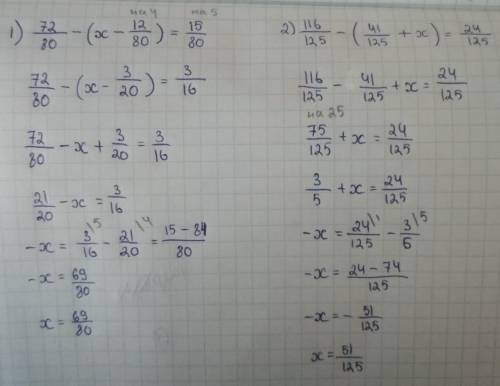 на 4 на 5
1) 72/80 - (x - 12/80) = 15/80
72/80 - (x - 3/20) = 3/16
72/80 - x + 3/20 = 3/16
21/20 - x = 3/16
-x = 3/16 \5 - 21/20 \4 = (15 - 84)/80
-x = 69/80
x = 69/80
2) 116/125 - (41/125 + x) = 24/125
116/125 - 41/125 + x = 24/125
на 25
75/125 + x = 24/125
3/5 + x = 24/125
-x = 24/125 \1 - 3/5 \5
-x = (24 - 74)/125
-x = - 51/125
x = 51/125